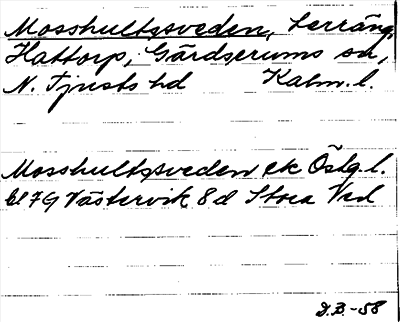 Mosshultssveden, terräng,
Hattorp, Gärdserums sn,
N. Tjusts hd Kalm. l.
Mosshultssveden ek Östg. l.
bl 7G Västervik 8d Stora Ved
D.B. -58